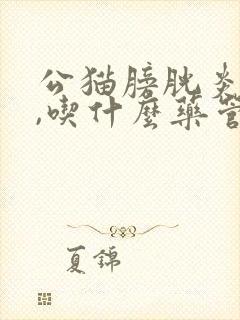 公猫膀胱炎
,喫什麼藥管
夏錦